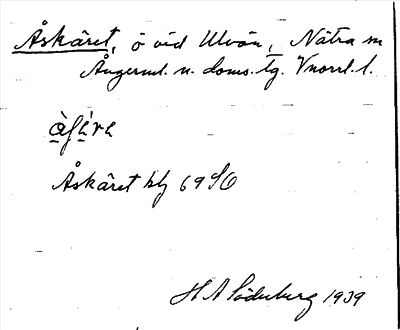 Åskäret, ö vid Ulvön, Nätra sn
Ångerml. n. doms. tg. Vnorrl. l.
Åskäret blg 69 SO
H A Söderberg 1939